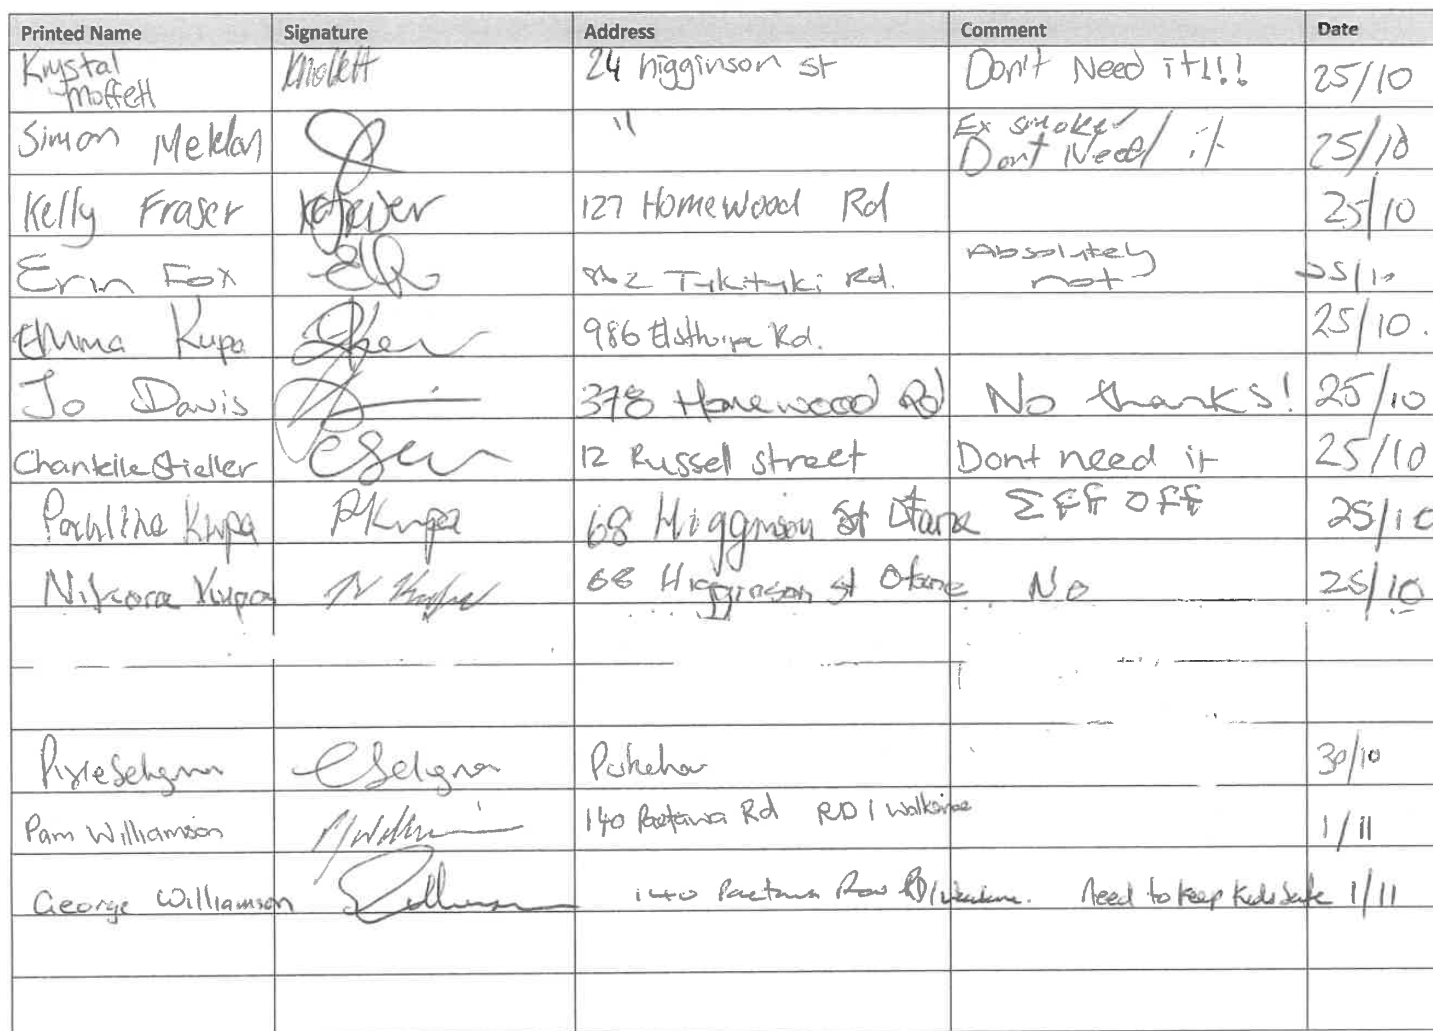 Printed Name Signature Address Comment Date
Krystal Moffett KMoffett 24 higginson st Don't Need it!!! 25/10
Simon " Ex smoker Dont Need it 25/10
Kelly Fraser 127 Homewood Rd 25/10
Erin Fox Tukituki Rd. Absolutely not 25/10
Emma Kupa 986 Elsthorpe Rd. 25/10.
Jo Davis 378 Homewood Rd No thanks! 25/10
Chantelle Stieller 12 Russel street Dont need it 25/10
Pauline Kupa PKupa 68 Higginson St Otane Eff off 25/10
Nikora Kupa N Kupa 68 Higginson st Otane No 25/10
30/10
Pam Williamson 140 Paetawa Rd RD1 1/11
George Williamson 140 Paetawa Need to keep kids safe 1/11